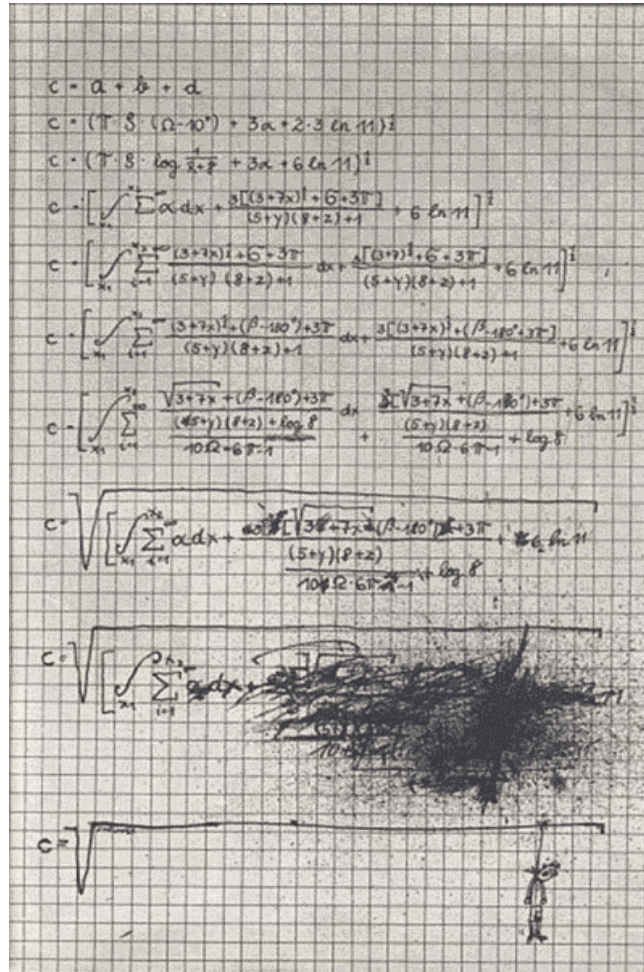 c = a + b + d
c = (π · 8 · (Ω-10°) + 3α + 2·3 ln 11)^½
c = (π · 8 · log 1/(x+8) + 3α + 6 ln 11)^½
c = [∫_{x₁}^{x₂} Σ^∞ α dx + 3[(3+7x)^½ + 6+3π] / ((5+y)(8+z)+1) + 6 ln 11]^½
c = [∫_{x₁}^{x₂} Σ_{i=1}^∞ ((3+7x)^½ + 6+3π) / ((5+y)(8+z)+1) dx + 3[(3+7)^½ + 6+3π] / ((5+y)(8+z)+1) + 6 ln 11]^½
c = [∫_{x₁}^{x₂} Σ_{i=1}^∞ ((3+7x)^½ + (β-180°)+3π) / ((5+y)(8+z)+1) dx + 3[(3+7x)^½ + (β-180°+3π] / ((5+y)(8+z)+1) + 6 ln 11]^½
c = [∫_{x₁}^{x₂} Σ_{i=1}^∞ (√(3+7x) + (β-180°)+3π) / (((5+y)(8+z) + log 8) / (10Ω-6π-1)) dx + 3[√(3+7x) + (β-180°)+3π / ((5+y)(8+z) / (10Ω-6π-1) + log 8) + 6 ln 11]^½
c = √[∫_{x₁}^{x₂} Σ_{i=1}^∞ α dx + [√(3+7x) (β-180°) +3π / ((5+y)(8+z) / (10Ω·6π-1) + log 8) + 6 ln 11
c = √[∫_{x₁}^{x₂} Σ_{i=1}^∞ dx +
c = √